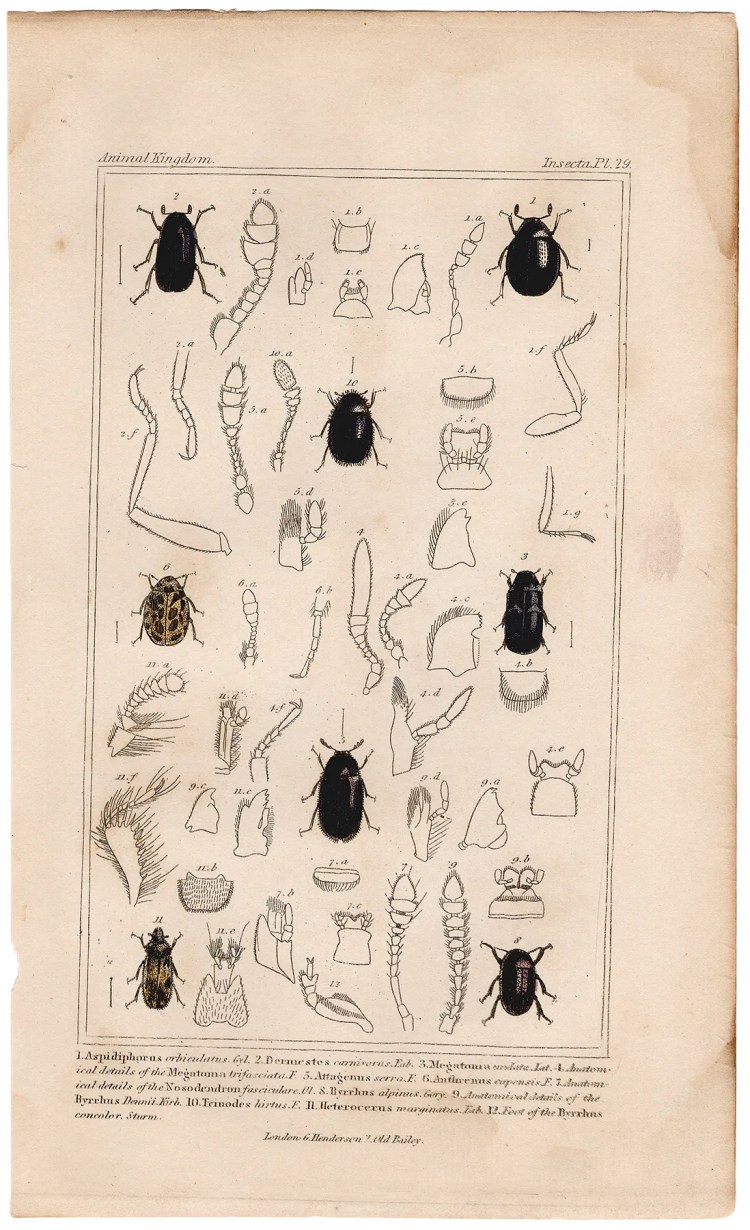 Animal Kingdom.
Insecta. Pl. 29.
2
2.a
1.b
1.a
1
1.d
1.c
1.e
2.a
10.a
10
5.b
1.f
2.f
5.a
5.e
5.d
5.c
1.g
4
6
6.a
6.b
4.a
4.c
3
11.a
4.b
11.d
4.f
5
4.d
4.e
11.f
9.c
11.c
9.d
9.a
11.b
7.a
7
9
9.b
7.b
7.e
11
11.e
12
8
1. Aspidiphorus orbiculatus. Gyl. 2. Dermestes carnivorus. Fab. 3. Megatoma undata. Lat. 4. Anatom-
ical details of the Megatoma trifasciata. F. 5. Attagenus serra. F. 6. Anthrenus capensis. F. 7. Anatom-
ical details of the Nosodendron fasciculare. Ol. 8. Byrrhus alpinus. Gory. 9. Anatomical details of the
Byrrhus Dennii. Kirb. 10. Trinodes hirtus. F. 11. Heterocerus marginatus. Fab. 12. Foot of the Byrrhus
concolor. Sturm.
London. G. Henderson 2. Old Bailey.